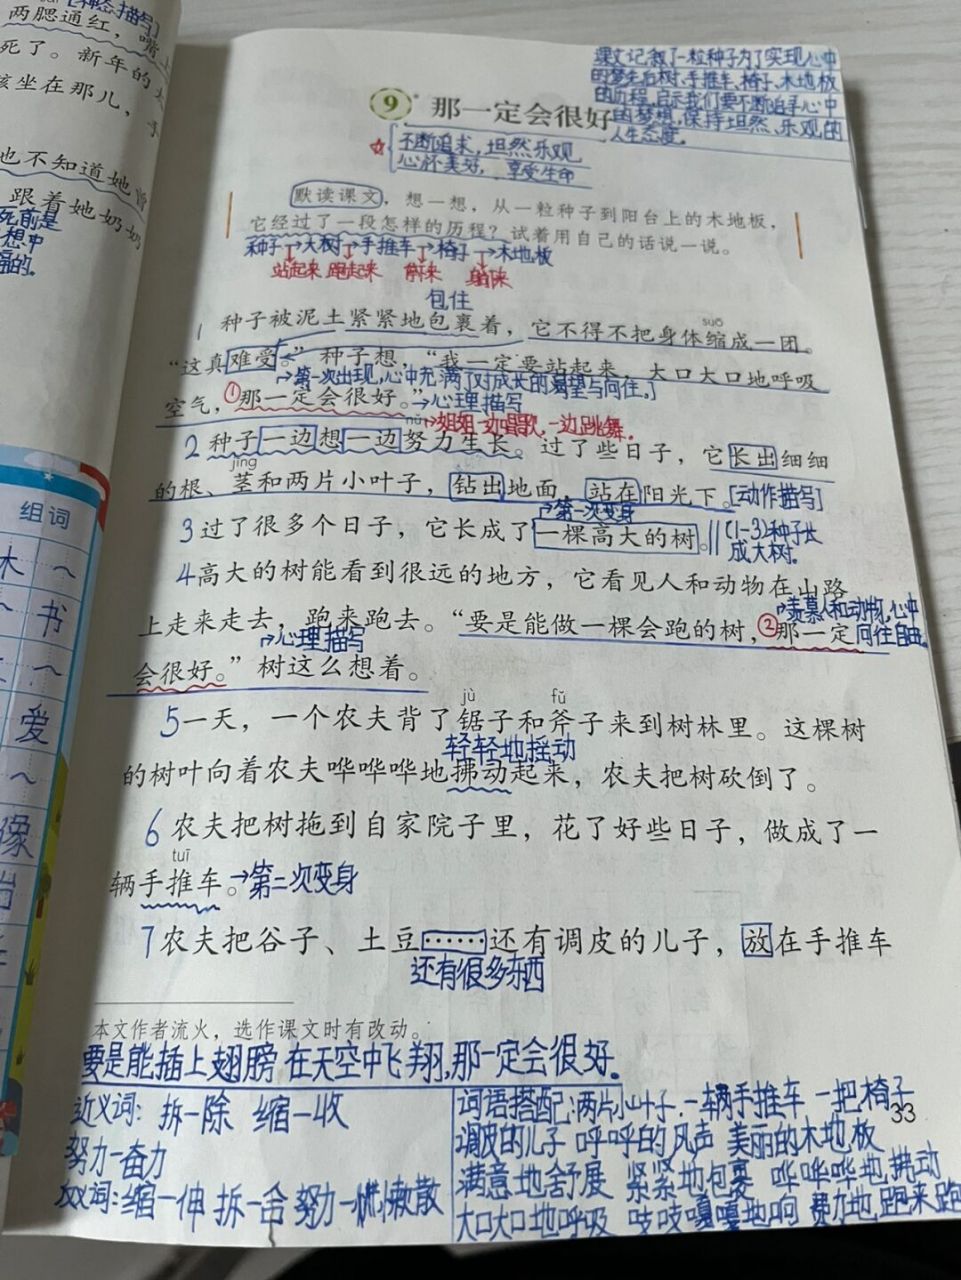 [神态描写]
两腮通红，嘴上
死了。新年的太
孩坐在那儿，手
也不知道她曾
跟着她奶奶
死前是
想中
福的。
组词
木
书
爱
像
课文记叙了一粒种子为了实现心中
的梦先后树、手推车、椅子、木地板
的历程，启示我们要不断追寻心中
的梦想，保持坦然、乐观的
人生态度。
⑨ 那一定会很好
☆ 不断追求，坦然乐观
心怀美好，享受生命
默读课文，想一想，从一粒种子到阳台上的木地板，
它经过了一段怎样的历程？试着用自己的话说一说。
种子→大树→手推车→椅子→木地板
站起来 跑起来 停下来 躺下来
包住
suō
1 种子被泥土紧紧地包裹着，它不得不把身体缩成一团。
“这真难受。”种子想，“我一定要站起来，大口大口地呼吸
→第一次出现，心中充满了对成长的渴望与向往。]
空气，①那一定会很好。”→心理描写
nǔ →姐姐一边唱歌，一边跳舞。
2 种子一边想一边努力生长。过了些日子，它长出细细
jīng
的根、茎和两片小叶子，钻出地面，站在阳光下。[动作描写]
→第一次变身
3 过了很多个日子，它长成了一棵高大的树。‖(1-3)种子长
成大树。
4 高大的树能看到很远的地方，它看见人和动物在山路
→羡慕人和动物，心中
上走来走去，跑来跑去。“要是能做一棵会跑的树，②那一定向往自由。
→心理描写
会很好。”树这么想着。
jù fǔ
5 一天，一个农夫背了锯子和斧子来到树林里。这棵树
轻轻地摇动
的树叶向着农夫哗哗哗地拂动起来，农夫把树砍倒了。
6 农夫把树拖到自家院子里，花了好些日子，做成了一
tuī
辆手推车。→第二次变身
7 农夫把谷子、土豆……还有调皮的儿子，放在手推车
还有很多东西
本文作者流火，选作课文时有改动。
要是能插上翅膀在天空中飞翔，那一定会很好。
33
近义词：拆—除 缩—收
努力—奋力
反义词：缩—伸 拆—合 努力—懒散
词语搭配：两片小叶子 一辆手推车 一把椅子
调皮的儿子 呼呼的风声 美丽的木地板
满意地舒展 紧紧地包裹 哗哗哗地拂动
大口大口地呼吸 吱吱嘎嘎地响 费力地跑来跑